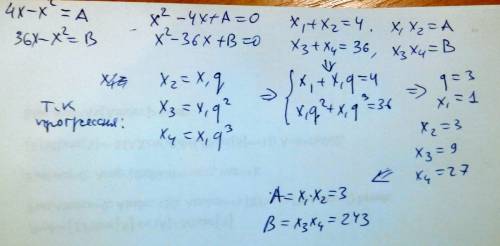 4x-x²=A x²-4x+A=0 x₁+x₂=4. x₁x₂=A
36x-x²=B x²-36x+B=0 x₃+x₄=36, x₃x₄=B
Т.К прогрессия: x₂=x₁q
x₃=x₁q²
x₄=x₁q³
⇒ { x₁+x₁q=4
x₁q²+x₁q³=36
⇒ q=3
x₁=1
x₂=3
x₃=9
x₄=27
A=x₁·x₂=3
B=x₃x₄=243